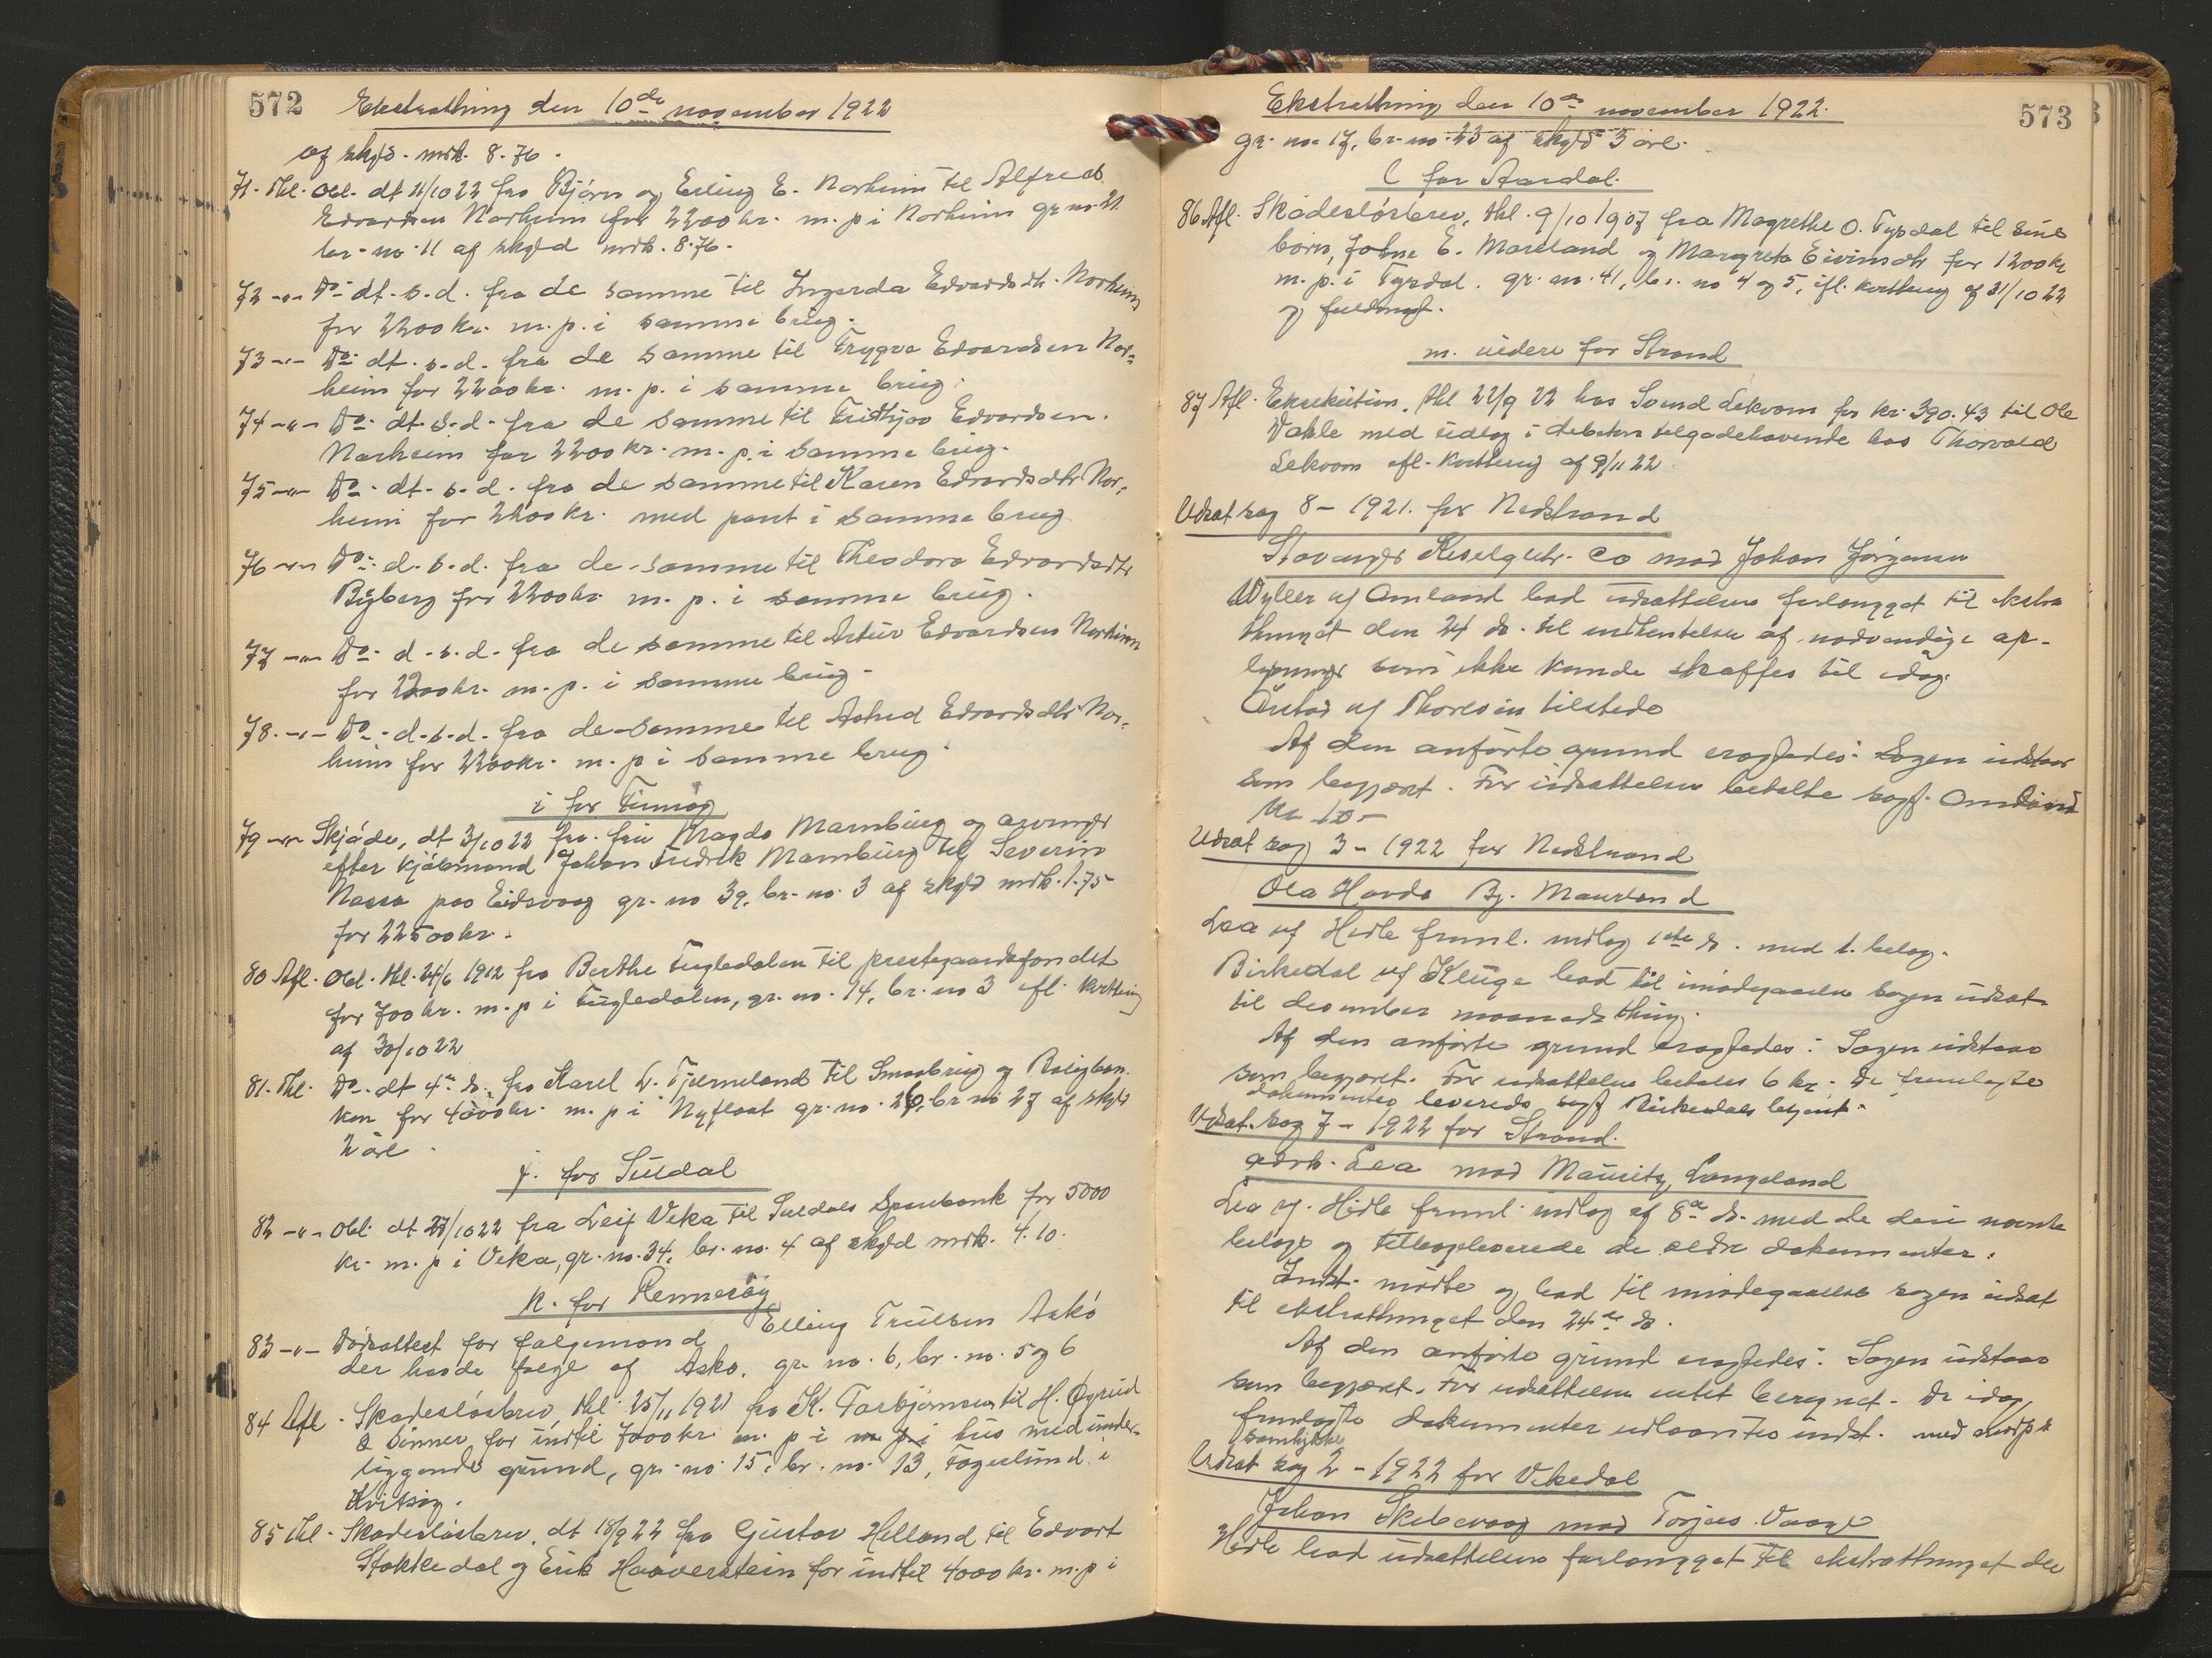 572
Ekstrathing den 10de november 1922
af skyld. mrk. 8.76.
71. Thl. Obl. dt 21/10 22 fra Bjørn og Erling E. Norheim til Alfred
Edvardsen Norheim for 2200 kr. m. p i Norheim gr no. 21
br. no 11 af skyld mrk. 8.76.
72 -"- Do dt. s. d. fra de samme til Ingerda Edvardsdtr. Norheim
for 2200 kr. m. p. i samme brug.
73 -"- Do dt. s. d. fra de samme til Trygve Edvardsen Nor-
heim for 2200 kr. m. p. i samme brug.
74 -"- Do dt. s. d. fra de samme til Fridthjov Edvardsen
Norheim for 2200 kr. m. p. i samme brug.
75 -"- Do dt. s. d. fra de samme til Karen Edvardsdtr Nor-
heim for 2200 kr. med pant i samme brug
76 -"- Do d. s. d. fra de samme til Theodora Edvardsdtr
Ryberg for 2200 kr m. p. i samme brug.
77 -"- Do d. s. d. fra de samme til Artur Edvardsen Norheim
for 2200 kr. m. p. i samme brug.
78. -"- Do d. s. d. fra de samme til Astrid Edvardsdtr Nor-
heim for 2200 kr. m. p i samme brug.
i for Finnøy
79 -"- Skjøde, dt 3/10 22 fra fru Magda Mamburg og arvinger
efter kjøbmand Johan Fredrik Mamburg til Severin
Nessa paa Eidsvaag gr. no 39, br. no. 3 af skyld mrk. 1.75
for 22500 kr.
80 Afl. Obl. thl. 24/6 1912 fra Berthe Fugledalen til prestegaardsfondet
for 700 kr. m. p i Fugledalen, gr. no. 14, br. no 3 ifl. kvittering
af 30/10 22
81. Thl. Do dt 4de ds. fra Karel L. Tjerneland til Smaabrug og Boligban-
ken for 4000 kr. m. p i Nyfloat gr. no. 26, br no 27 af skyld
2 øre.
j. for Suldal
82 -"- Obl. dt 27/10 22 fra Leif Veka til Suldals Sparebank for 5000
kr. m. p i Veka, gr. no. 34, br. no. 4 af skyld mrk. 4.10.
k. for Rennesøy
83 -"- Dødsattest for følgemand Elling Trulsen Askø
der havde følge af Askø, gr. no. 6, br. no. 5 og 6
84 Afl. Skadesløsbrev, thl. 25/11 1921 fra K. Torbjørnsen til H. Øgrind
& Sønner for indtil 7000 kr. m. p i m p i hus med under-
liggende grund, gr. no. 15, br. no. 13, Fagerlund i
Kvitsøy.
85 Thl. Skadesløsbrev, dt 18/9 22 fra Gustav Helland til Edvart
Stokkedal og Erik Haaverstein for indtil 4000 kr. m. p i
573
Ekstrathing den 10de november 1922.
gr. no. 17, br. no. 23 af skyld 3 øre.
l for Aardal.
86 Afl. Skadesløsbrev, thl. 9/10 1907 fra Magrethe O. Tysdal til sine
børn, Johne E. Mareland og Margreta Eivinsdtr for 1200 kr
m. p. i Tysdal. gr. no. 41, br. no 4 og 5, ifl. kvittering af 31/10 22
og fuldmagt.
m. videre for Strand
87 Afl. Eksekution, thl 22/9 22 hos Svend Lekvam for kr. 390.43 til Ole
Vahle med udlæg i debitors tilgodehavende hos Thorvald
Lekvam ifl. kvittering af 9/11 22.
Udsat sag 8 - 1921. for Nedstrand
Stavanger Kiselguhr. Co mod Johan Jørgensen
Wyller uf Omland bad udsættelsen forlænget til ekstra
thinget den 24 ds. til indhentelse af nødvendige op-
lysninger som ikke kunde skaffes til idag.
Ørstad uf Thoresen tilstede
Af den anførte grund eragtedes: Sagen udstaar
som begjært. For udsættelsen betalte sagf. Omland
kr 10.-
Udsat sag 3 - 1922 for Nedstrand
Ola Havda Bj. Maurland
Lea uf Hidle freml. indlæg 1ste ds. med 1. bilag.
Birkedal uf Kluge bad til imødegaaelse sagen udsat
til desember maanedsthing.
Af den anførte grund eragtedes: Sagen udstaar
som begjæret. For udsættelsen betales 6 kr. De fremlagte
dokumenter leveredes sagf Birkedal begjært.
Udsat. sag 7 - 1922 for Strand.
advk. Lea mod Mauritz Langeland
Lea uf. Hidle freml. indlæg af 8de ds. med de deri nævnte
bilage og tilbageleverede de ældre dokumenter.
Indst. mødte og bad til imødegaaelse sagen udsat
til ekstrathinget den 24de ds.
Af den anførte grund eragtedes: Sagen udstaar
som begjæret. For udsættelsen intet beregnet. De idag
fremlagte dokumenter udlaantes indst. med
samtykke
Udsat sag 2 - 1922 for Vikedal
Johan Skebevaag mod Torjus Vaage
Hidle bad udsættelsen forlænget til ekstrathinget den